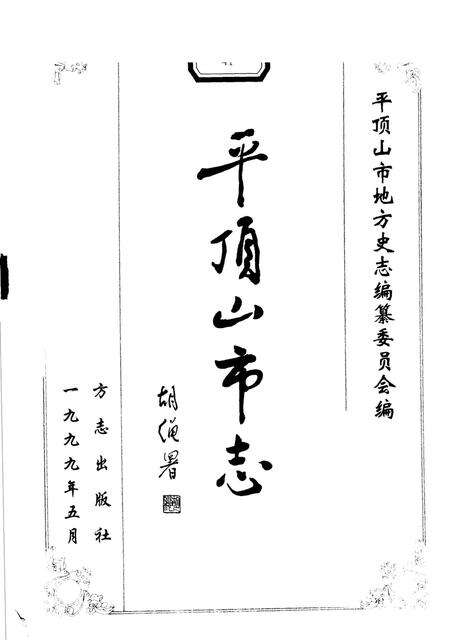 平顶山市地方史志编纂委员会编
平顶山市志
胡绳署
方志出版社
一九九九年五月